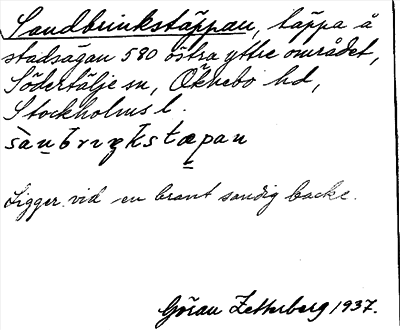 Sandbrinkstäppan, täppa å
stadsägan 580 östra yttre området,
Södertälje sn, Öknebo hd,
Stockholms l.
sànbrıŋkstæpan
Ligger vid en brant sandig backe.
Göran Zetterberg 1937.